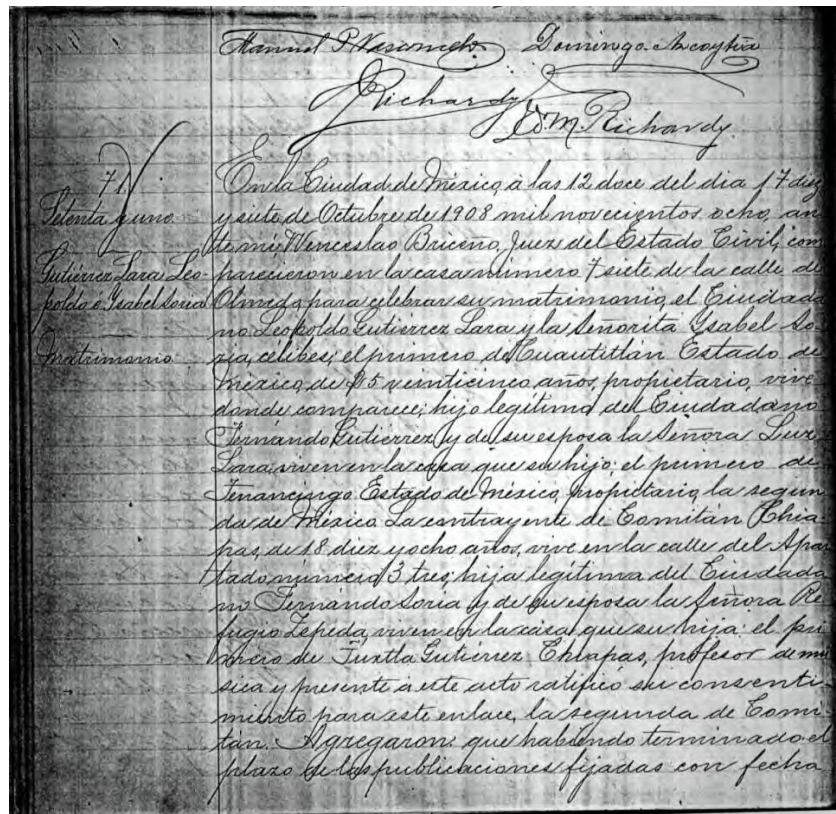 Manuel P. Vasconcelos Domingo Ancoytia
Richardy
Ed. M. Richardy.
71
Setenta y uno.
Gutiérrez Lara Leo-
poldo e Ysabel Soria
Matrimonio.
En la Ciudad de México, á las 12 doce del dia 17 diez
y siete de Octubre de 1908 mil novecientos ocho, an
te mi, Wenceslao Briceño, Juez del Estado Civil, com
parecieron en la casa número 7 siete de la calle de
Olmedo, para celebrar su matrimonio, el Ciudada
no Leopoldo Gutierrez Lara y la Señorita Ysabel So-
ria, célibes; el primero de Cuautitlan Estado de
México, de 25 veinticinco años, propietario, vive
donde comparece; hijo legítimo del Ciudadano
Fernando Gutierrez y de su esposa la Señora Luz
Lara, viven en la casa que su hijo; el primero de
Tenancingo Estado de México, propietario, la segun
da de México. La contrayente de Comitán Chia-
pas, de 18 diez y ocho años, vive en la calle del Apar
tado número 3 tres; hija legítima del Ciudada
no Fernando Soria y de su esposa la Señora Re
fugio Zepeda, viven en la casa que su hija: el pri
mero de Tuxtla Gutierrez Chiapas, profesor de mú
sica y presente á este acto ratificó su consenti
miento para este enlace, la segunda de Comi
tán. Agregaron: que habiendo terminado el
plazo de las publicaciones fijadas con fecha